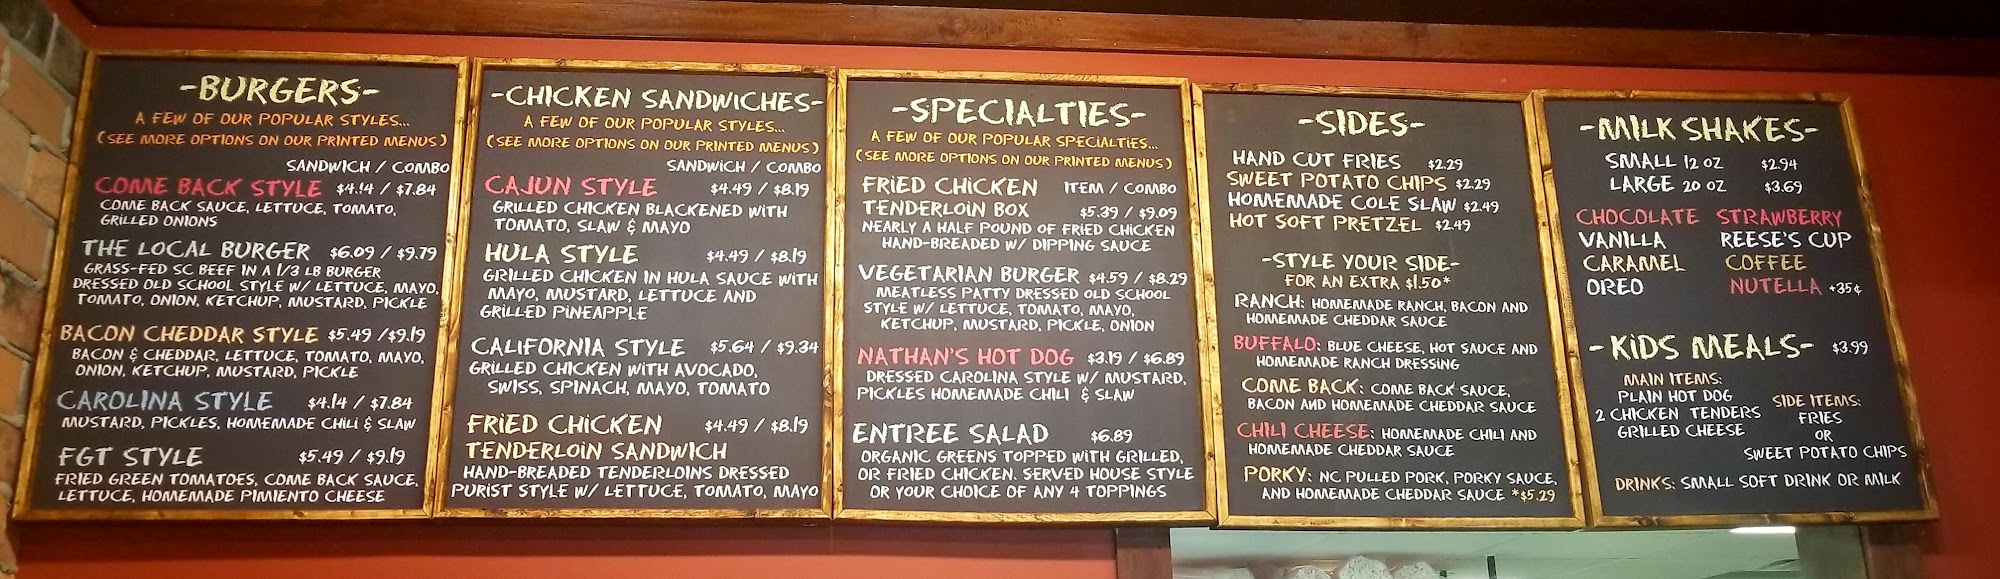 -BURGERS-
A FEW OF OUR POPULAR STYLES...
(SEE MORE OPTIONS ON OUR PRINTED MENUS)
SANDWICH / COMBO
COME BACK STYLE $4.14 / $7.84
COME BACK SAUCE, LETTUCE, TOMATO,
GRILLED ONIONS
THE LOCAL BURGER $6.09 / $9.79
GRASS-FED SC BEEF IN A 1/3 LB BURGER
DRESSED OLD SCHOOL STYLE W/ LETTUCE, MAYO,
TOMATO, ONION, KETCHUP, MUSTARD, PICKLE
BACON CHEDDAR STYLE $5.49 / $9.19
BACON & CHEDDAR, LETTUCE, TOMATO, MAYO,
ONION, KETCHUP, MUSTARD, PICKLE
CAROLINA STYLE $4.14 / $7.84
MUSTARD, PICKLES, HOMEMADE CHILI & SLAW
FGT STYLE $5.49 / $9.19
FRIED GREEN TOMATOES, COME BACK SAUCE,
LETTUCE, HOMEMADE PIMIENTO CHEESE
-CHICKEN SANDWICHES-
A FEW OF OUR POPULAR STYLES...
(SEE MORE OPTIONS ON OUR PRINTED MENUS)
SANDWICH / COMBO
CAJUN STYLE $4.49 / $8.19
GRILLED CHICKEN BLACKENED WITH
TOMATO, SLAW & MAYO
HULA STYLE $4.49 / $8.19
GRILLED CHICKEN IN HULA SAUCE WITH
MAYO, MUSTARD, LETTUCE AND
GRILLED PINEAPPLE
CALIFORNIA STYLE $5.64 / $9.34
GRILLED CHICKEN WITH AVOCADO,
SWISS, SPINACH, MAYO, TOMATO
FRIED CHICKEN $4.49 / $8.19
TENDERLOIN SANDWICH
HAND-BREADED TENDERLOINS DRESSED
PURIST STYLE W/ LETTUCE, TOMATO, MAYO
-SPECIALTIES-
A FEW OF OUR POPULAR SPECIALTIES...
(SEE MORE OPTIONS ON OUR PRINTED MENUS)
FRIED CHICKEN ITEM / COMBO
TENDERLOIN BOX $5.39 / $9.09
NEARLY A HALF POUND OF FRIED CHICKEN
HAND-BREADED W/ DIPPING SAUCE
VEGETARIAN BURGER $4.59 / $8.29
MEATLESS PATTY DRESSED OLD SCHOOL
STYLE W/ LETTUCE, TOMATO, MAYO,
KETCHUP, MUSTARD, PICKLE, ONION
NATHAN'S HOT DOG $3.19 / $6.89
DRESSED CAROLINA STYLE W/ MUSTARD,
PICKLES HOMEMADE CHILI & SLAW
ENTREE SALAD $6.89
ORGANIC GREENS TOPPED WITH GRILLED,
OR FRIED CHICKEN. SERVED HOUSE STYLE
OR YOUR CHOICE OF ANY 4 TOPPINGS
-SIDES-
HAND CUT FRIES $2.29
SWEET POTATO CHIPS $2.29
HOMEMADE COLE SLAW $2.49
HOT SOFT PRETZEL $2.49
-STYLE YOUR SIDE-
FOR AN EXTRA $1.50*
RANCH: HOMEMADE RANCH, BACON AND
HOMEMADE CHEDDAR SAUCE
BUFFALO: BLUE CHEESE, HOT SAUCE AND
HOMEMADE RANCH DRESSING
COME BACK: COME BACK SAUCE,
BACON AND HOMEMADE CHEDDAR SAUCE
CHILI CHEESE: HOMEMADE CHILI AND
HOMEMADE CHEDDAR SAUCE
PORKY: NC PULLED PORK, PORKY SAUCE,
AND HOMEMADE CHEDDAR SAUCE *$5.29
-MILK SHAKES-
SMALL 12 OZ $2.94
LARGE 20 OZ $3.69
CHOCOLATE STRAWBERRY
VANILLA REESE'S CUP
CARAMEL COFFEE
OREO NUTELLA +35¢
-KIDS MEALS- $3.99
MAIN ITEMS:
PLAIN HOT DOG
2 CHICKEN TENDERS
GRILLED CHEESE
SIDE ITEMS:
FRIES
OR
SWEET POTATO CHIPS
DRINKS: SMALL SOFT DRINK OR MILK